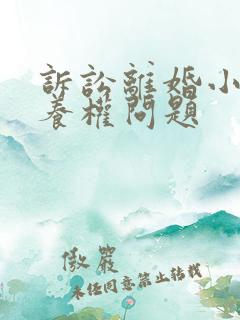 訴訟離婚小
養權問題
傲嚴
未經同意禁止轉載